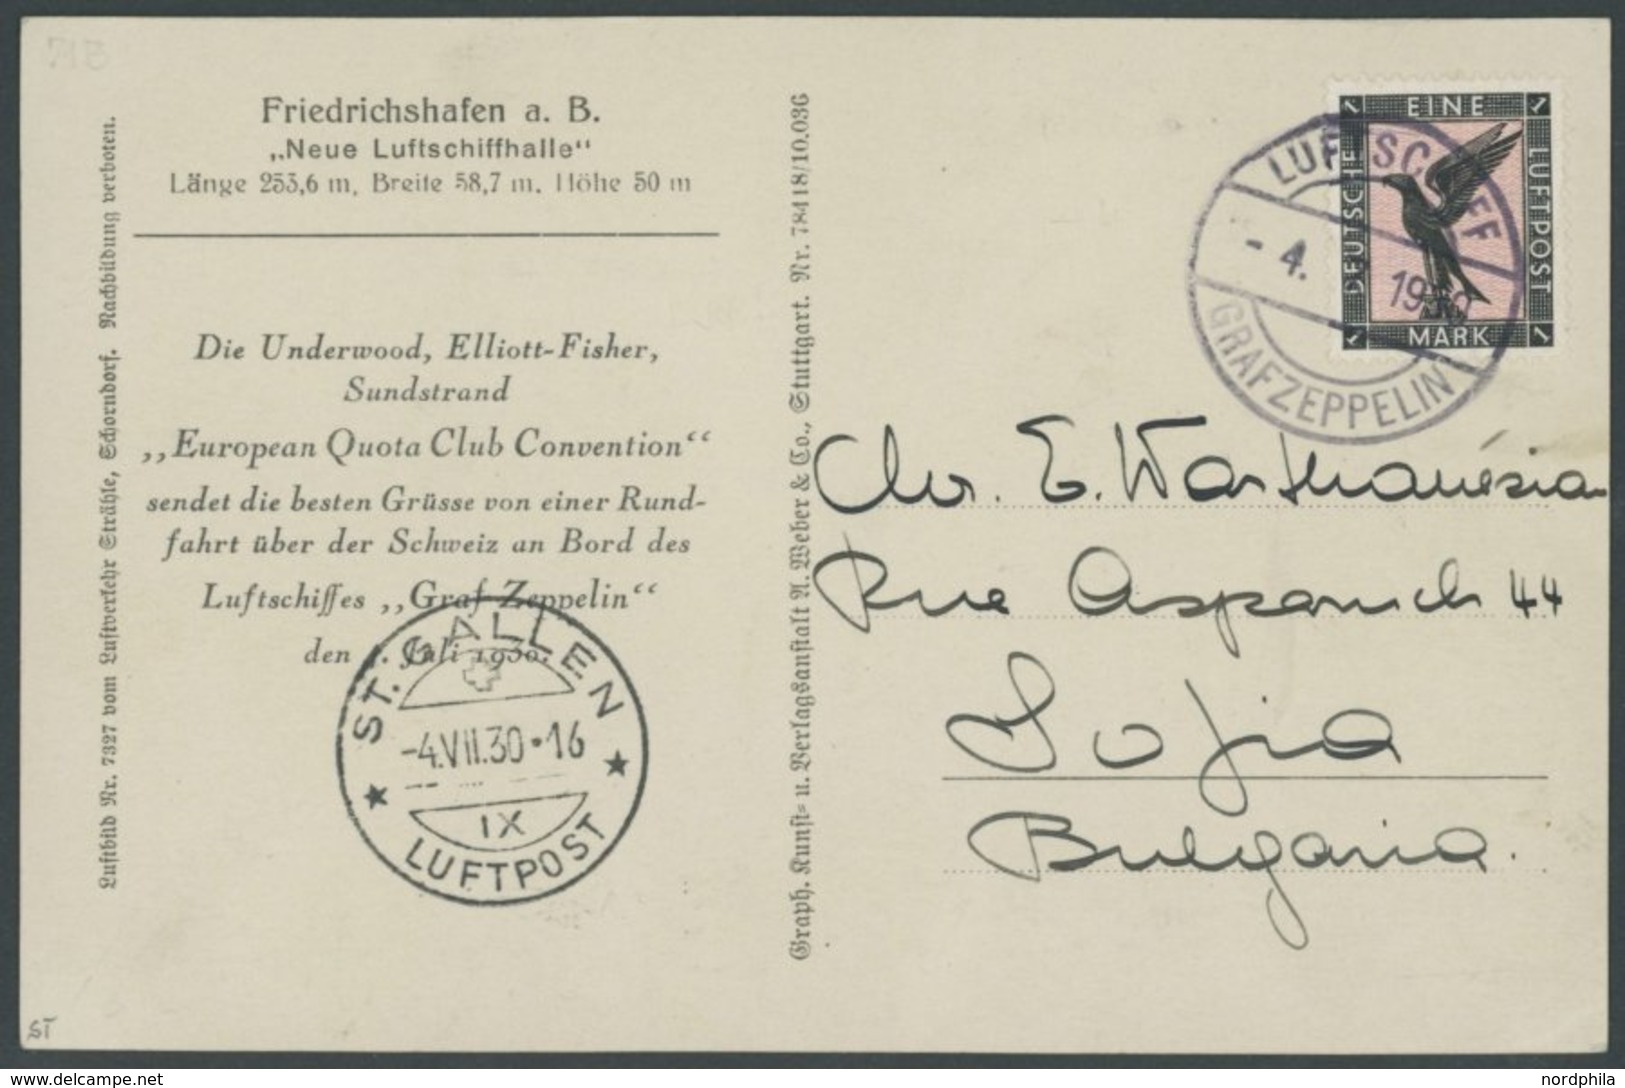 Friedrichshafen a. B.
„Neue Luftschiffhalle“
Länge 253,6 m, Breite 58,7 m, Höhe 50 m
Die Underwood, Elliott-Fisher,
Sundstrand
„European Quota Club Convention“
sendet die besten Grüsse von einer Rund-
fahrt über der Schweiz an Bord des
Luftschiffes „Graf Zeppelin“
den 4. Juli 1930.
ST. GALLEN
-4.VII.30•16
IX
LUFTPOST
Luftbild Nr. 7327 vom Luftverkehr Strähle, Schorndorf. Nachbildung verboten.
Graph. Kunst= u. Verlagsanstalt A. Weber & Co., Stuttgart. Nr. 78418/10.036
EINE
DEUTSCHE LUFTPOST
MARK
1 1 1 1
LUFTSCHIFF
- 4. 1930
GRAF ZEPPELIN
E. Warthanésian
Rue Asparuch 44
Sofia
Bulgaria.
ST
www.delcampe.net
nordphila